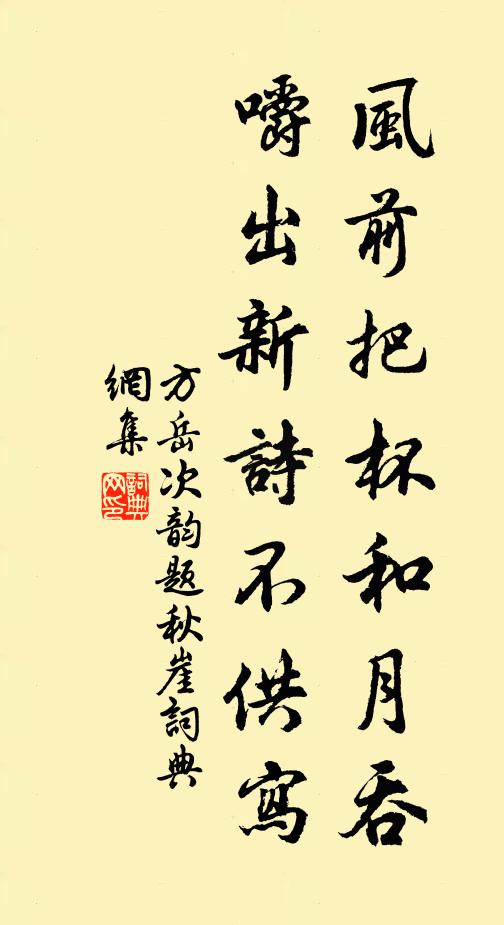 風前把杯和月吞
嚼出新詩不供寫
方岳次韵题秋崖詞典
網集
詞典
网印